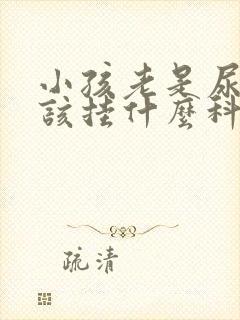 小孩老是尿
該掛什麼科
疏清